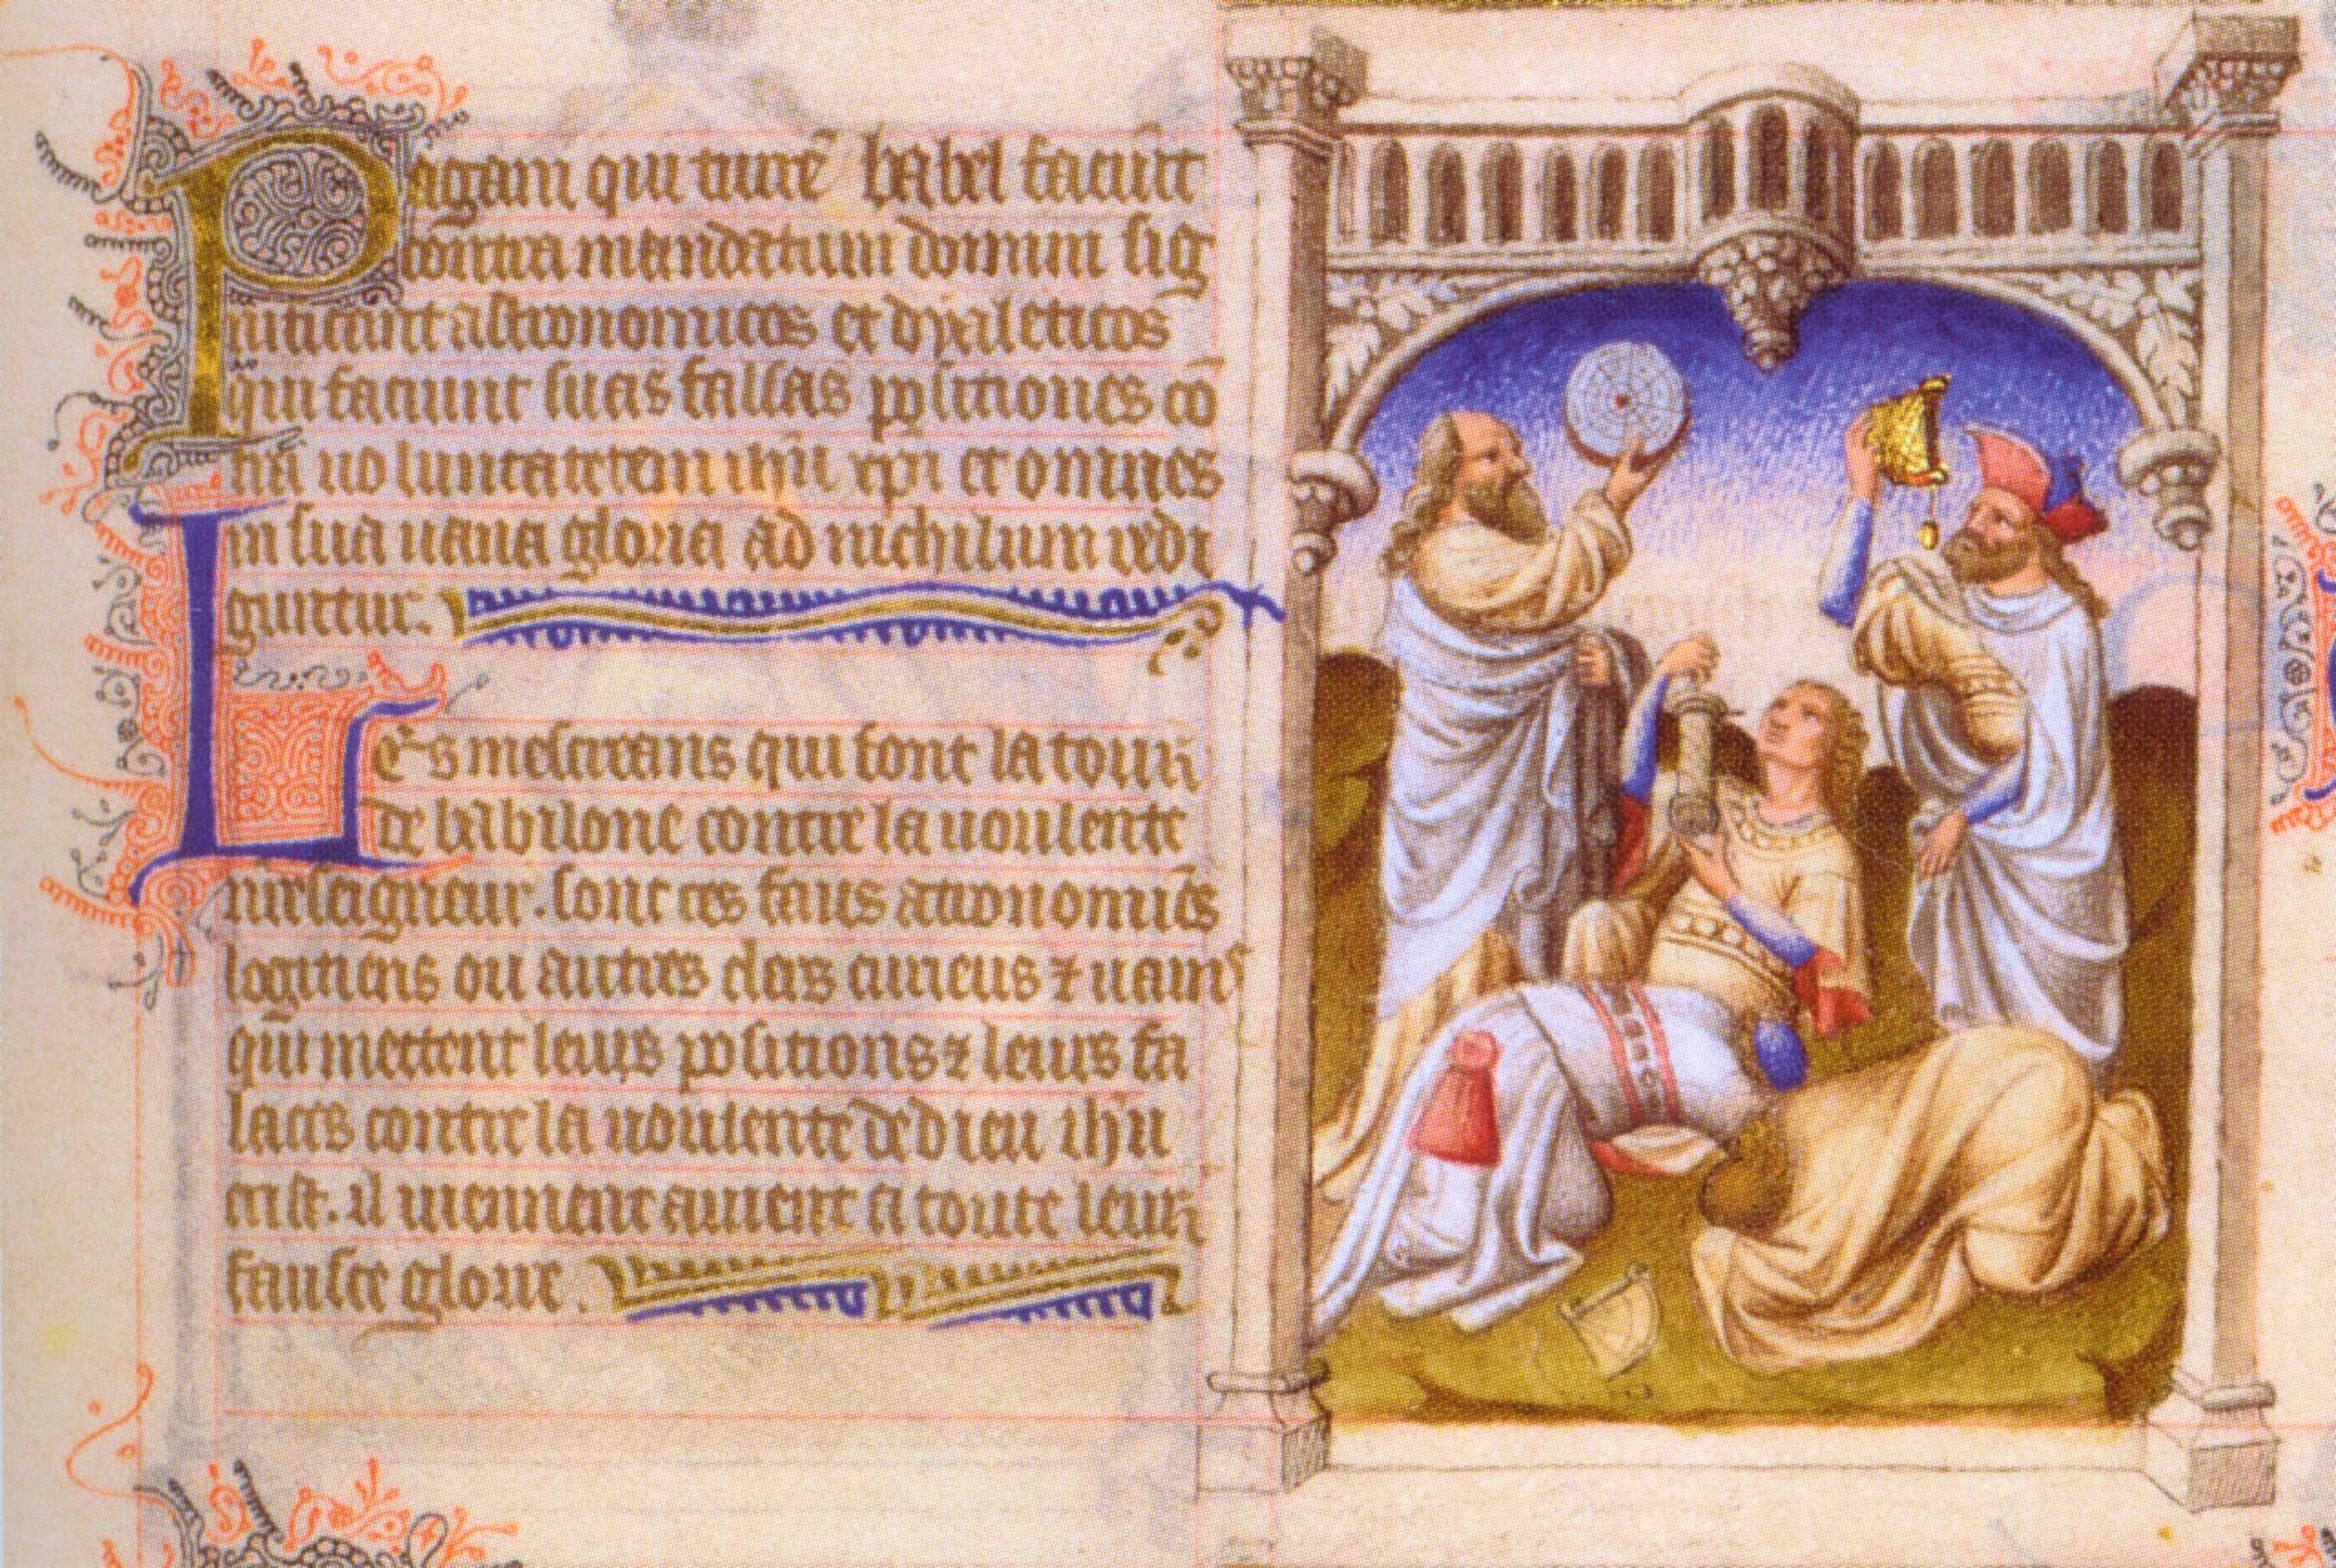 Pagani qui turrẽ babel faciũt
contra mandatum domini sig
nificant astronomicos et dyaleticos
qui faciunt suas falsas positiones cõ
tra uoluntatem ihũ xpi et omnes
in sua uana gloria ad nichilum redi
guntur.
Les mescreans qui font la tour
de babilone contre la uoulente
nr̃eseigneur. sont ces faus astronomiẽs
logiciens ou autres clers curieus ⁊ uains
qui mettent leurs positions ⁊ leurs fa
laces contre la uoulente de dieu ihũ
crist. il uiennent a toute leur
fausse gloire.